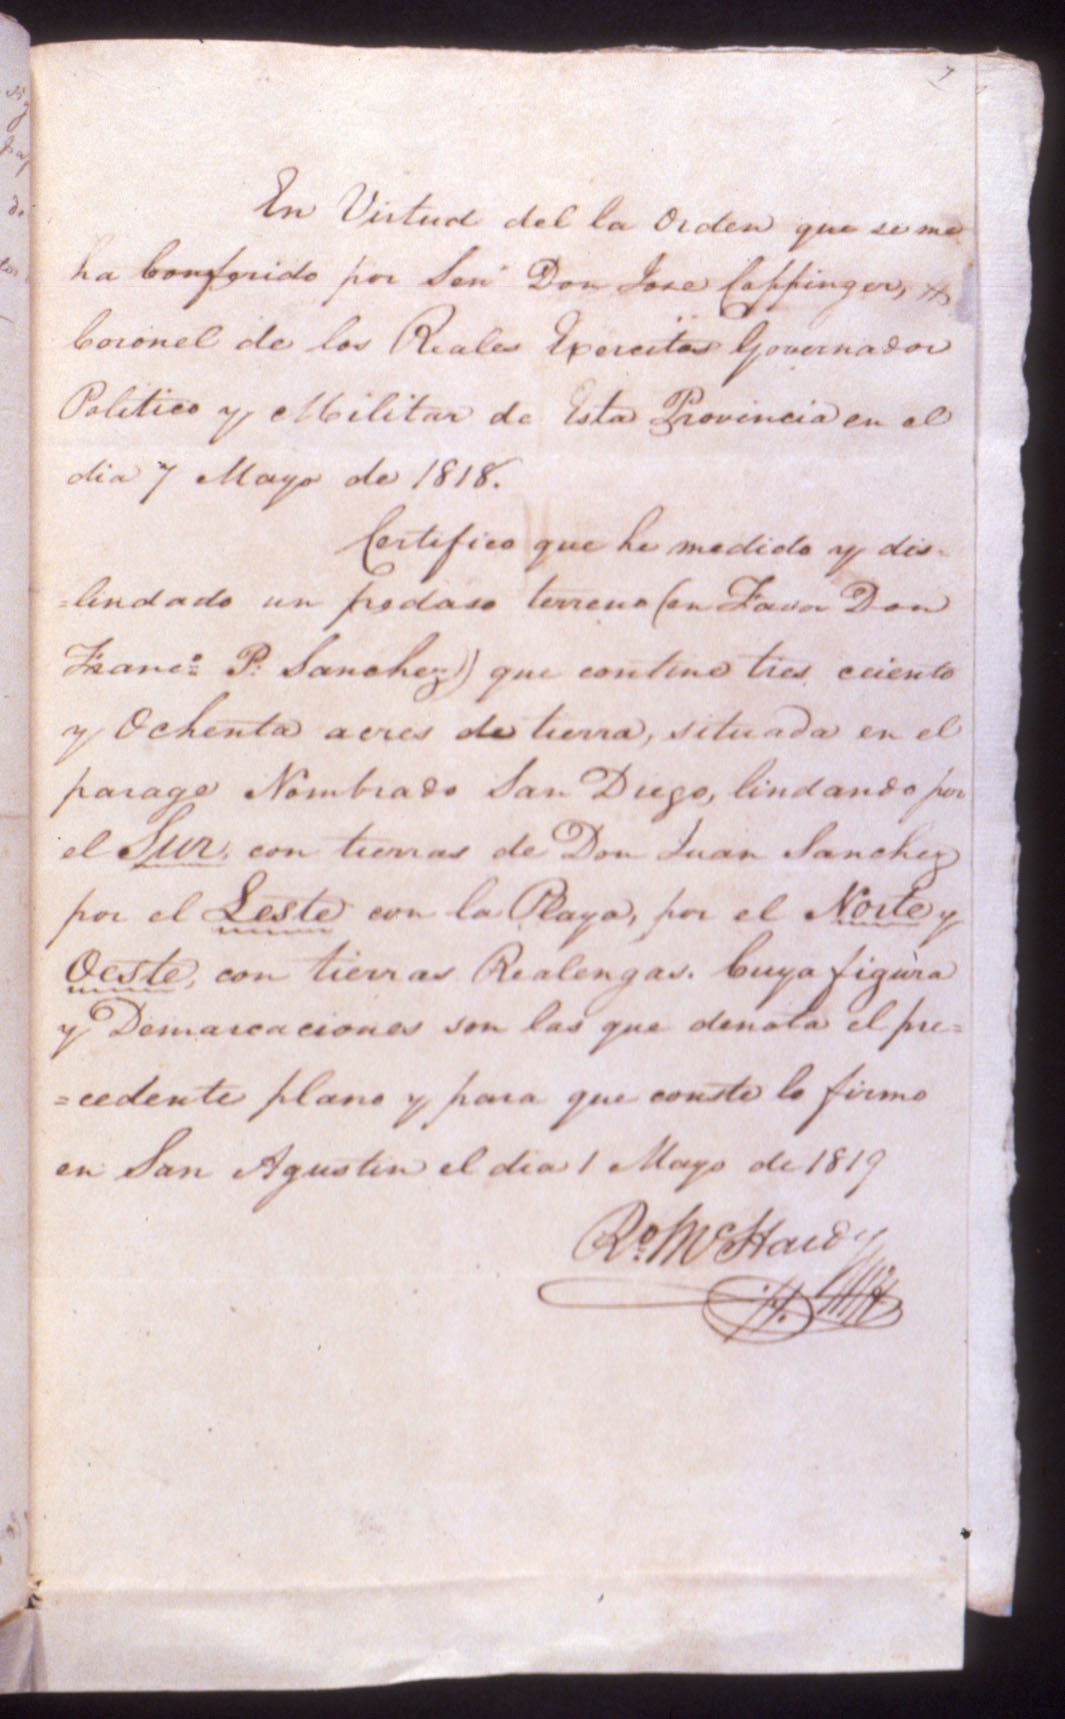 7
En Virtud del la Orden que se me
ha Conferido por Sen^r Don Jose Coppinger,
Coronel de los Reales Exercitos Governador
Politico y Militar de Esta Provincia en el
dia 7 Mayo de 1818.
Certifico que he medido y dis=
=lindado un pedaso terreno (en Favor Don
Franc.º P. Sanchez) que contine tres ciento
y Ochenta acres de tierra, situada en el
parage Nombrado San Diego, lindando por
el Sur, con tierras de Don Juan Sanchez
por el Leste con la Playa, por el Norte y
Oeste, con tierras Realengas. Cuya figura
y Demarcaciones son las que denota el pre=
=cedente plano y para que conste lo firmo
en San Agustin el dia 1 Mayo de 1819
Rº McHardy